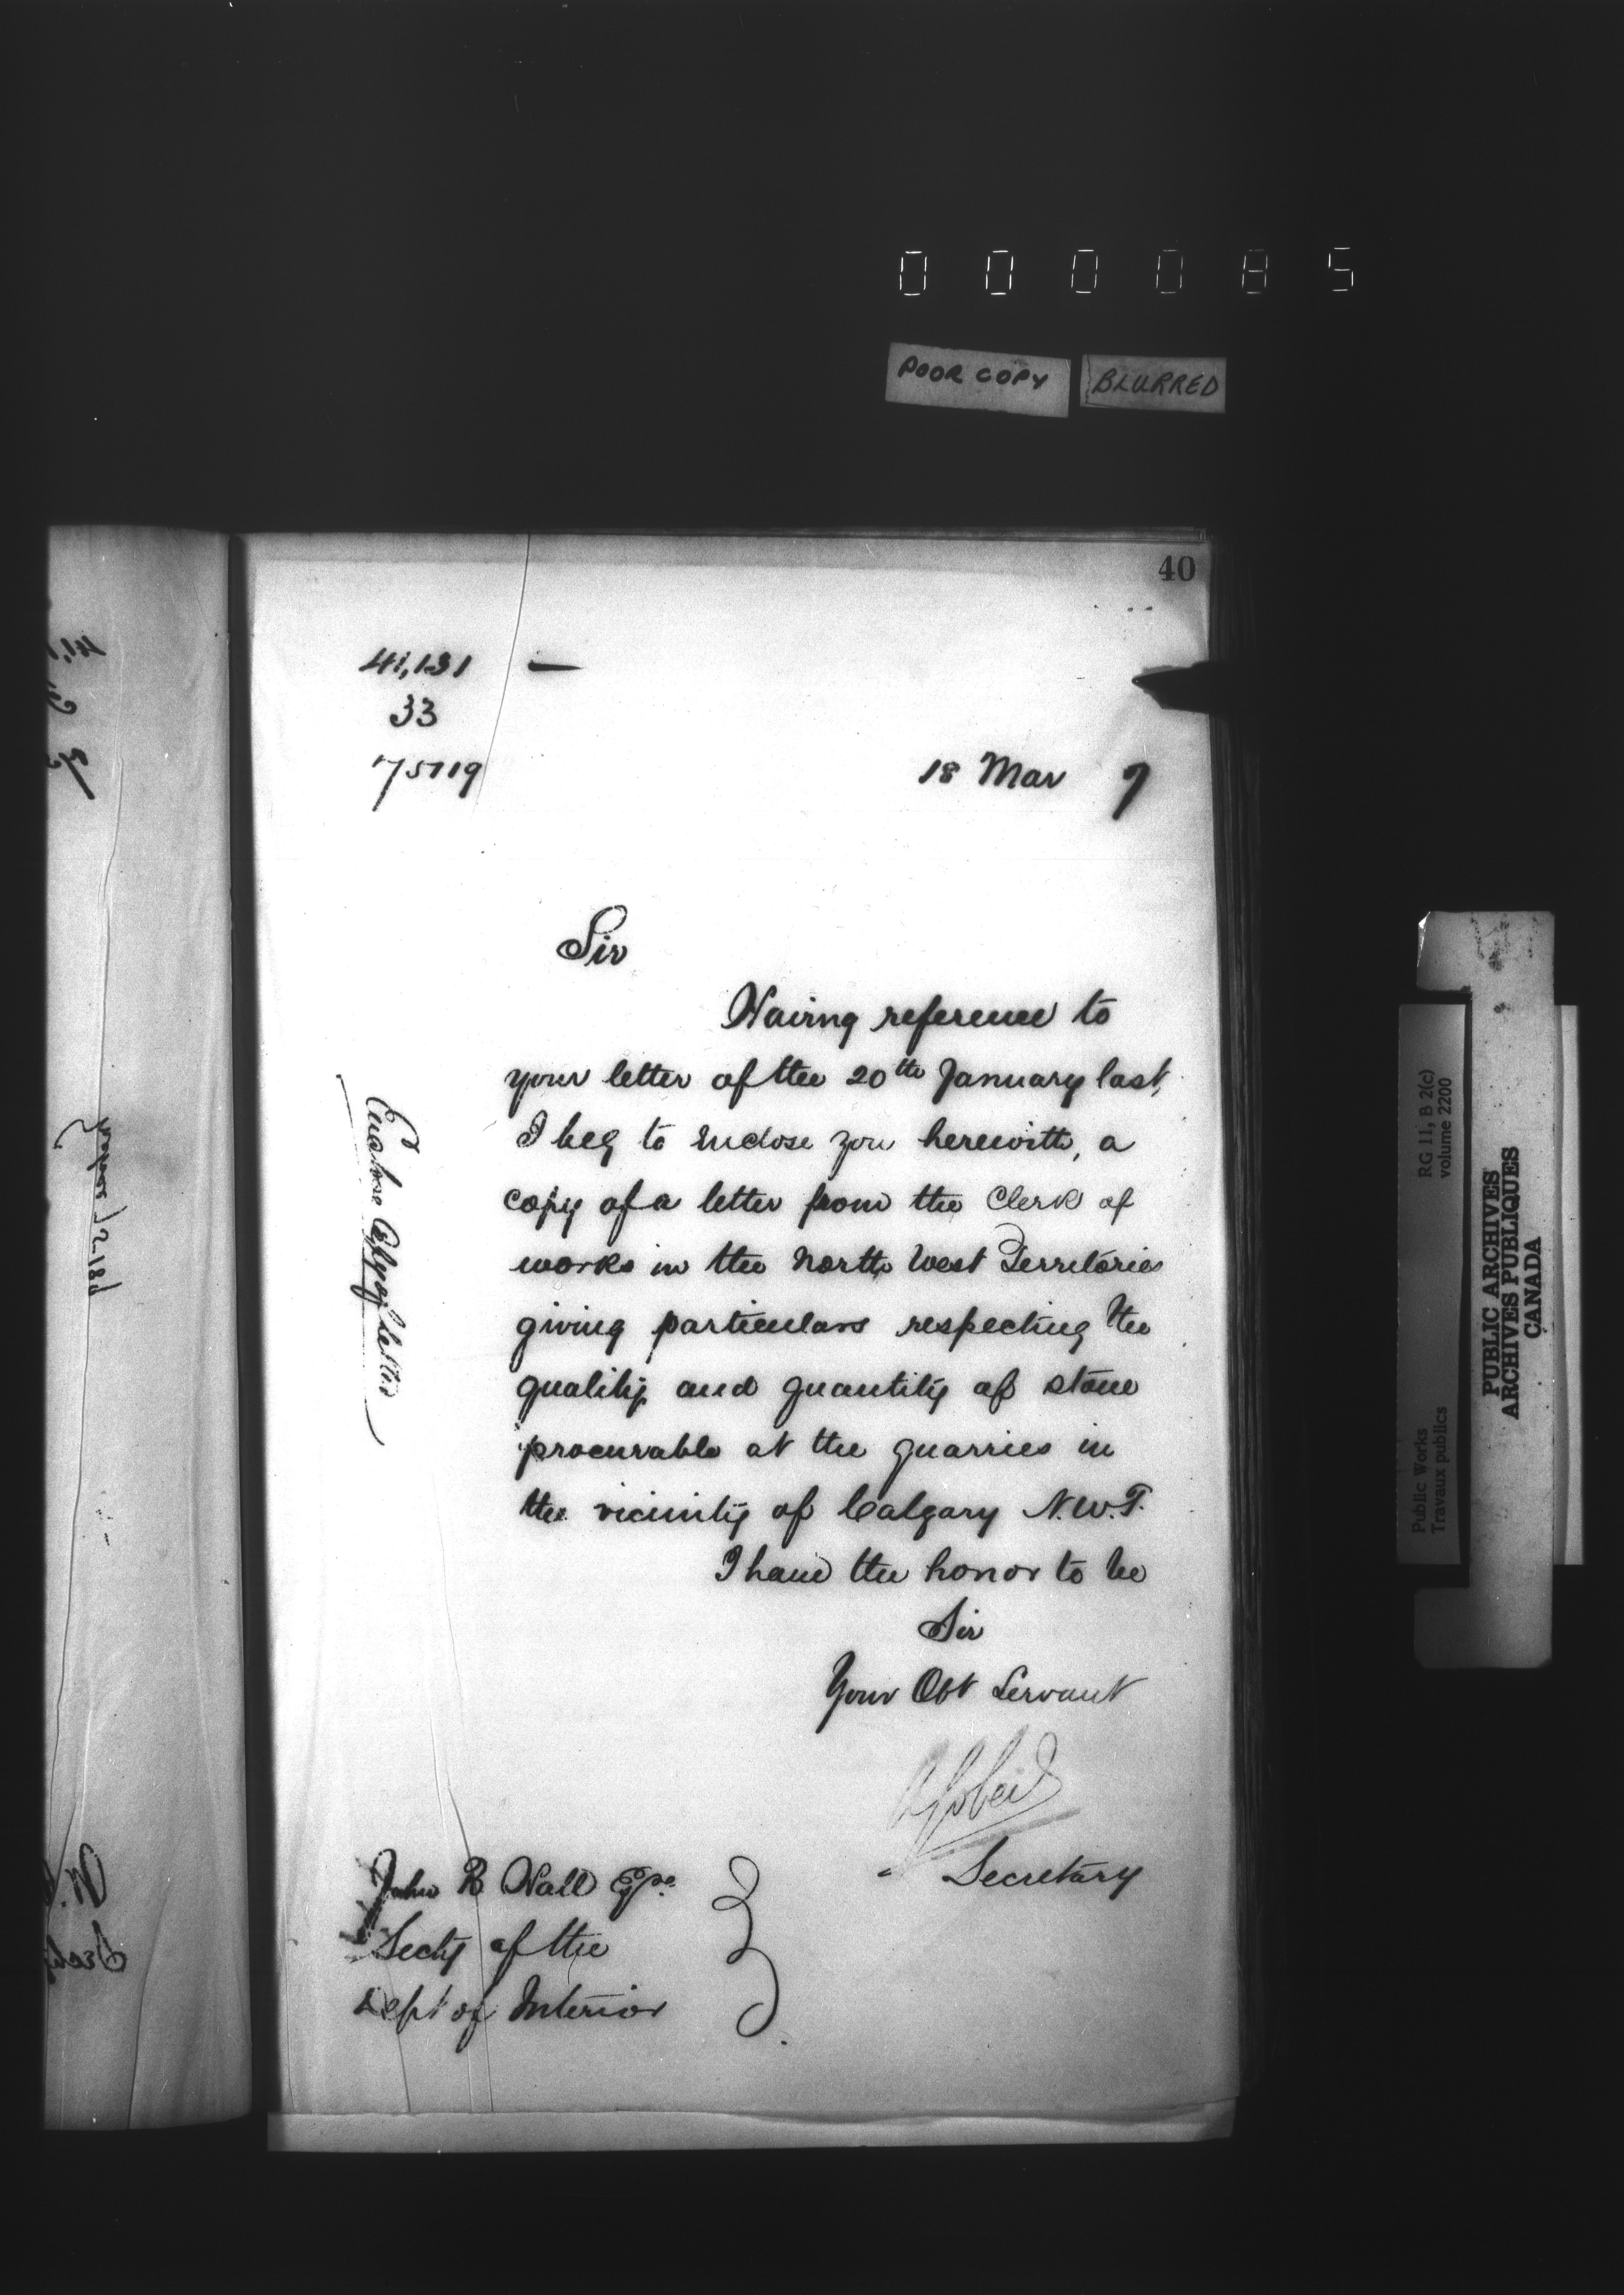 000085
POOR COPY BLURRED
40
41,131 —
33
75719
18 Mar 7
Sir
Having reference to
your letter of the 20th January last,
I beg to enclose you herewith, a
copy of a letter from the Clerk of
works in the North West Territories
giving particulars respecting the
quality and quantity of stone
procurable at the quarries in
the vicinity of Calgary N.W.T.
I have the honor to be
Sir
Your Obt Servant
A Gobeil
Secretary
John R Hall Esqre
Secty of the
Dept of Interior
Enclose copy of letter
RG 11, B 2(c)
volume 2200
Public Works
Travaux publics
PUBLIC ARCHIVES
ARCHIVES PUBLIQUES
CANADA